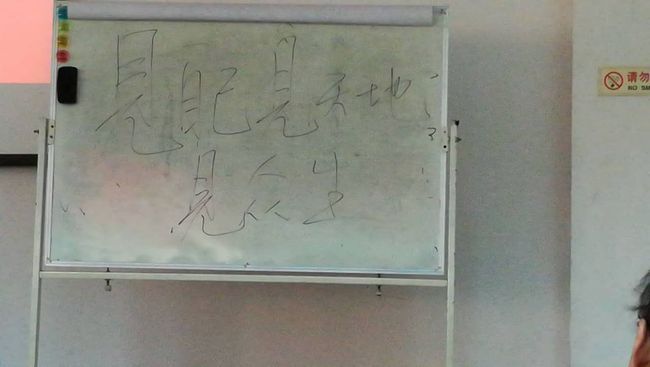 見自己見天地
見众生
请勿
NO SM